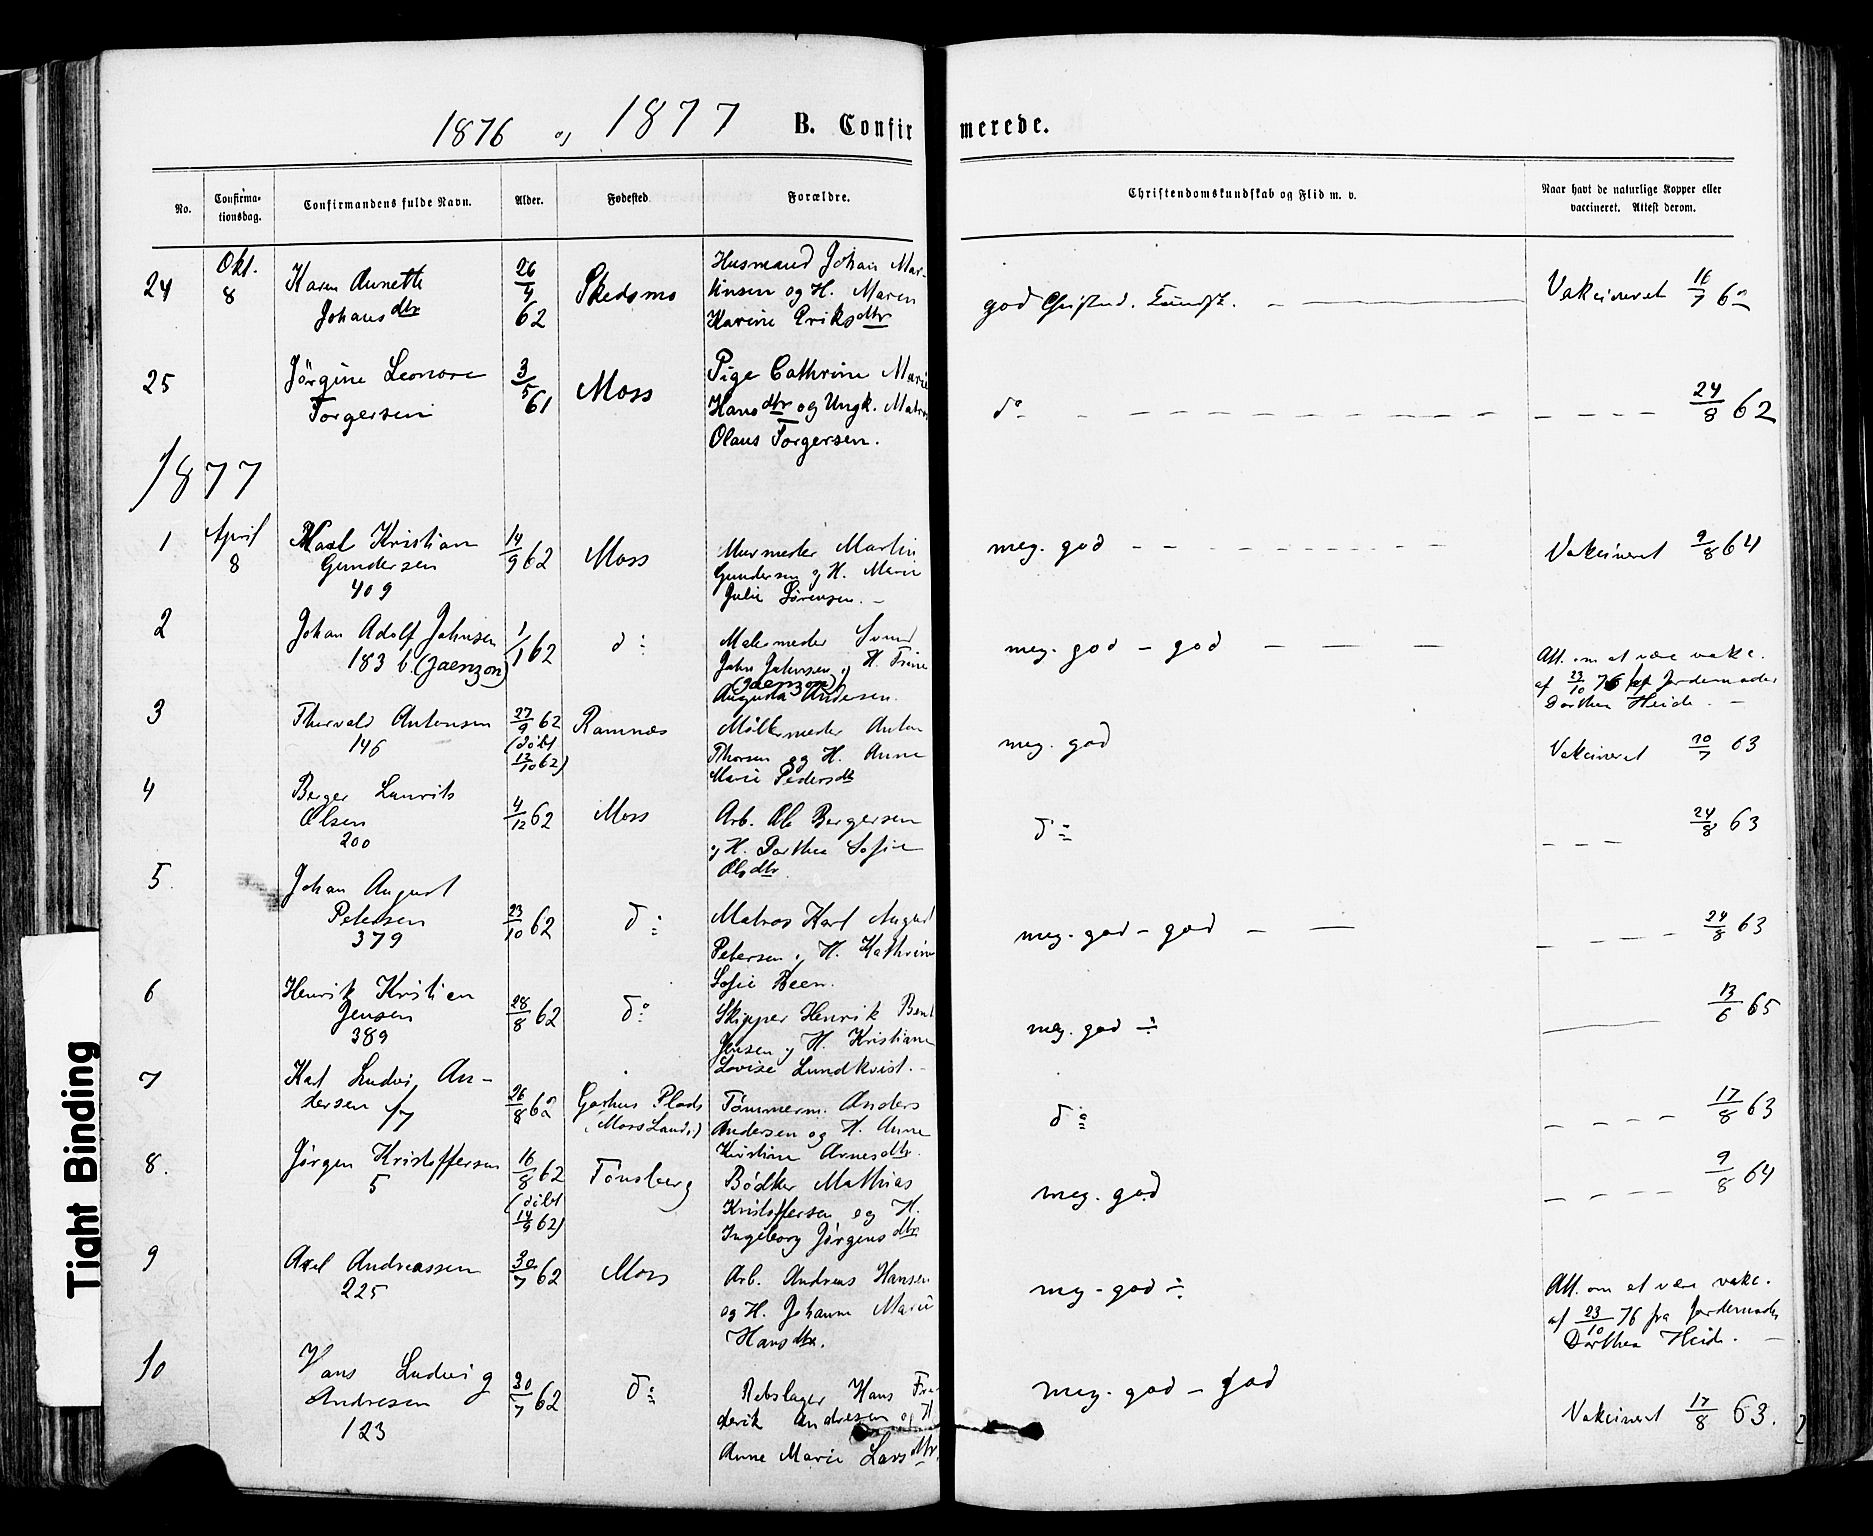 1876 og 1877 B. Confirmerede.
No. Confirmationsdag. Confirmandens fulde Navn. Alder. Fødested Forældre. Christendomskundskab og Flid m. v. Naar havt de naturlige Kopper eller vaccineret. Attest derom.
24 Okt. 8 Karen Annette Johansdtr 26/4 62 Skedsmo Husmand Johan Martinsen og H. Maren Karine Eriksdtr god Christend. Kundsk. — Vakcineret 16/7 62
25 Jörgine Leonore Torgersen 3/5 61 Moss Pige Cathrine Marie Hansdtr og Ungk. Matros Olaus Torgersen. do — — — 24/8 62
1877
1 April 8 Karl Kristian Gundersen 409 14/9 62 Moss Murmester Martin Gundersen og H. Marie Julie Sørensen. — meg. god — — — Vakcineret 9/8 64
2 Johan Adolf Johnsen 183 b. (Jaenzon) 1/1 62 do Malermester Svend John Johnsen (Jaenzon) og H. Trine Augusta Andersen. meg. god – god — — — Att. om at være vakc. af 23/10 76 fra Jordemoder Dorthea Heide. —
3 Thorvald Antonsen 146 27/9 62 (døbt 12/10 62) Ramnæs Møllermester Anton Thorsen og H. Anne Marie Pedersdtr meg. god Vakcineret 20/7 63
4 Berger Laurits Olsen 200 4/12 62 Moss Arb. Ole Bergersen og H. Dorthea Sofie Olsdtr. do — — — 24/8 63
5. Johan August Petersen 379 23/10 62 do Matros Karl August Petersen og H. Kathrine Sofie Been. meg. god – god — — — — — 24/8 63
6 Henrik Kristian Jensen 389 28/8 62 do Skipper Henrik Bent Jensen og H. Kristiane Lovise Lundkvist. – meg. god ÷ — 13/6 65
7 Karl Ludvig Andersen 17 26/8 62 Garhus Plads (Moss Lands.) Tømmerm. Anders Andersen og H. Anne Kristine Arnesdtr. do — — — — 17/8 63
8. Jørgen Kristoffersen 5 16/8 62 (døbt 14/9 62) Tønsberg Bødker Mathias Kristoffersen og H. Ingeborg Jørgensdtr meg. god — — — — 9/8 64
9 Axel Andreassen 225 30/7 62 Moss Arb. Andreas Hansen og H. Johanne Marie Hansdtr. meg. god ÷ Att. om at være vakc. af 23/10 76 fra Jordemoder Dorthea Heide. —
10 Hans Ludvig Andresen 123 30/7 62 do Rebslager Hans Frederik Andresen og H. Anne Marie Larsdtr. meg. god – god Vakcineret 17/8 63.
Tight Binding